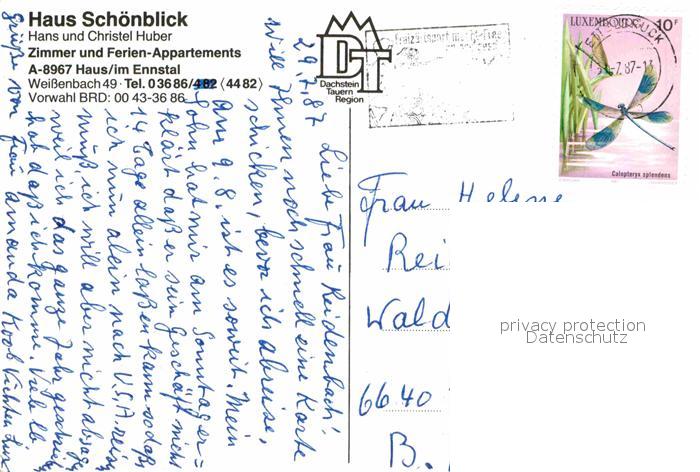 Haus Schönblick
Hans und Christel Huber
Zimmer und Ferien-Appartements
A-8967 Haus/im Ennstal
Weißenbach 49 · Tel. 0 36 86/482 (44 82)
Vorwahl BRD: 00 43-36 86
Dachstein
Tauern
Region
LUXEMBOURG 10F
Calopteryx splendens
29.7.87
Liebe Frau Reidenbach!
Will Ihnen noch schnell eine Karte
schicken, bevor ich abreise.
Am 9.8. ist es soweit. Mein
Sohn hat mir am Sonntag er=
klärt daßer sein Geschäft nicht
14 Tage allein laßen kann sodaß
ich nun alein nach U.S.A. reisen
muß, ich will aber nicht absage
weil ich das ganze Jahr
hab daß ich komme. Viele lb
Grüße von Frau Amanda
Frau Helene
Rei
Wald
6640
B.
privacy protection
Datenschutz